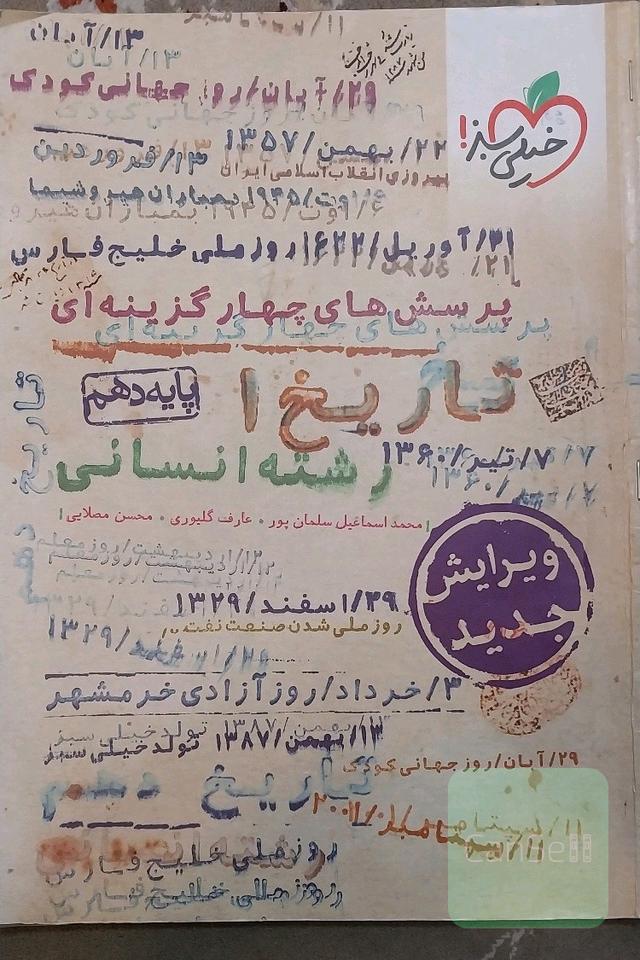 ۱۳/آبان
۱۳/آبان
۲۹/آبان/روز جهانی کودک
خیلی سبز!
۲۲/بهمن/۱۳۵۷
۱۳/فروردین
پیروزی انقلاب اسلامی ایران
۶/اوت/۱۹۴۵ بمباران هیروشیما
۶/اوت/۱۹۴۵ بمباران هیرو
۲۱/آوریل/۱۶۲۲ روز ملی خلیج فارس
پرسش های چهار گزینه ای
پرسش های چهار گزینه ای
تاریخ ۱
پایه دهم
تاریخ
رشته انسانی
۷/تیر/۱۳۶۰
محمد اسماعیل سلمان پور • عارف گلیوری • محسن مصلایی
ویرایش
جدید
۱۲/اردیبهشت/روز معلم
۱۲/اردیبهشت/روز معلم
۲۹/اسفند/۱۳۲۹
روز ملی شدن صنعت نفت
۲۹/اسفند/۱۳۲۹
۳/خرداد/روز آزادی خرمشهر
۱۳/بهمن/۱۳۸۷ تولد خیلی سبز
۲۹/آبان/روز جهانی کودک
تاریخ دهم
۱۱/سپتامبر/۲۰۰۱
رشته انسانی
روز ملی خلیج فارس
روز ملی خلیج فارس